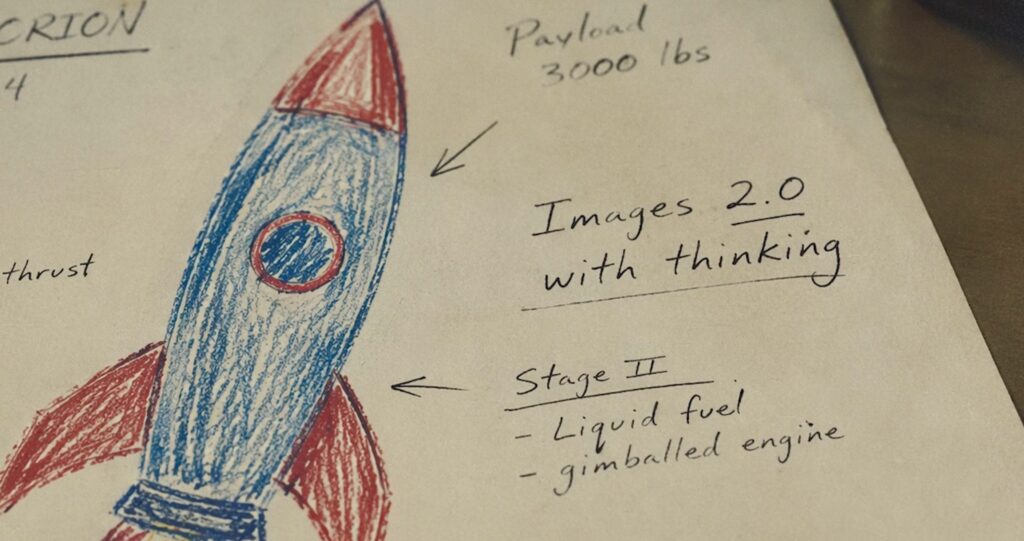 ORION
4
thrust
Payload
3000 lbs
Images 2.0
with thinking
Stage II
- Liquid fuel
- gimballed engine